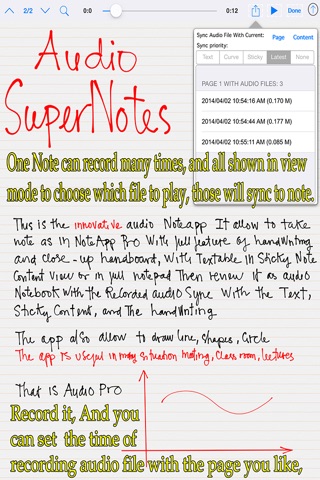 2/2
0:0
0:12
Done
Sync Audio File With Current:
Page
Content
Sync priority:
Text
Curve
Sticky
Latest
None
PAGE 1 WITH AUDIO FILES: 3
2014/04/02 10:54:16 AM (0.170 M)
2014/04/02 10:54:44 AM (0.177 M)
2014/04/02 10:55:11 AM (0.085 M)
Audio
SuperNotes
One Note can record many times, and all shown in view
mode to choose which file to play, those will sync to note.
This is the innovative audio Noteapp It allow to take
note as in NoteApp Pro With full feature of handwriting
and close-up handboard, with Textable in Sticky Note
Content view or in full notepad Then review it as audio
Notebook with the Recorded audio Sync with the Text,
Sticky Content, and the handwriting
The app also allow to draw line, shapes, Circle
The app is useful in many situation meeting, Class room, lectures
That is Audio Pro
Record it, And you
can set the time of
recording audio file with the page you like,